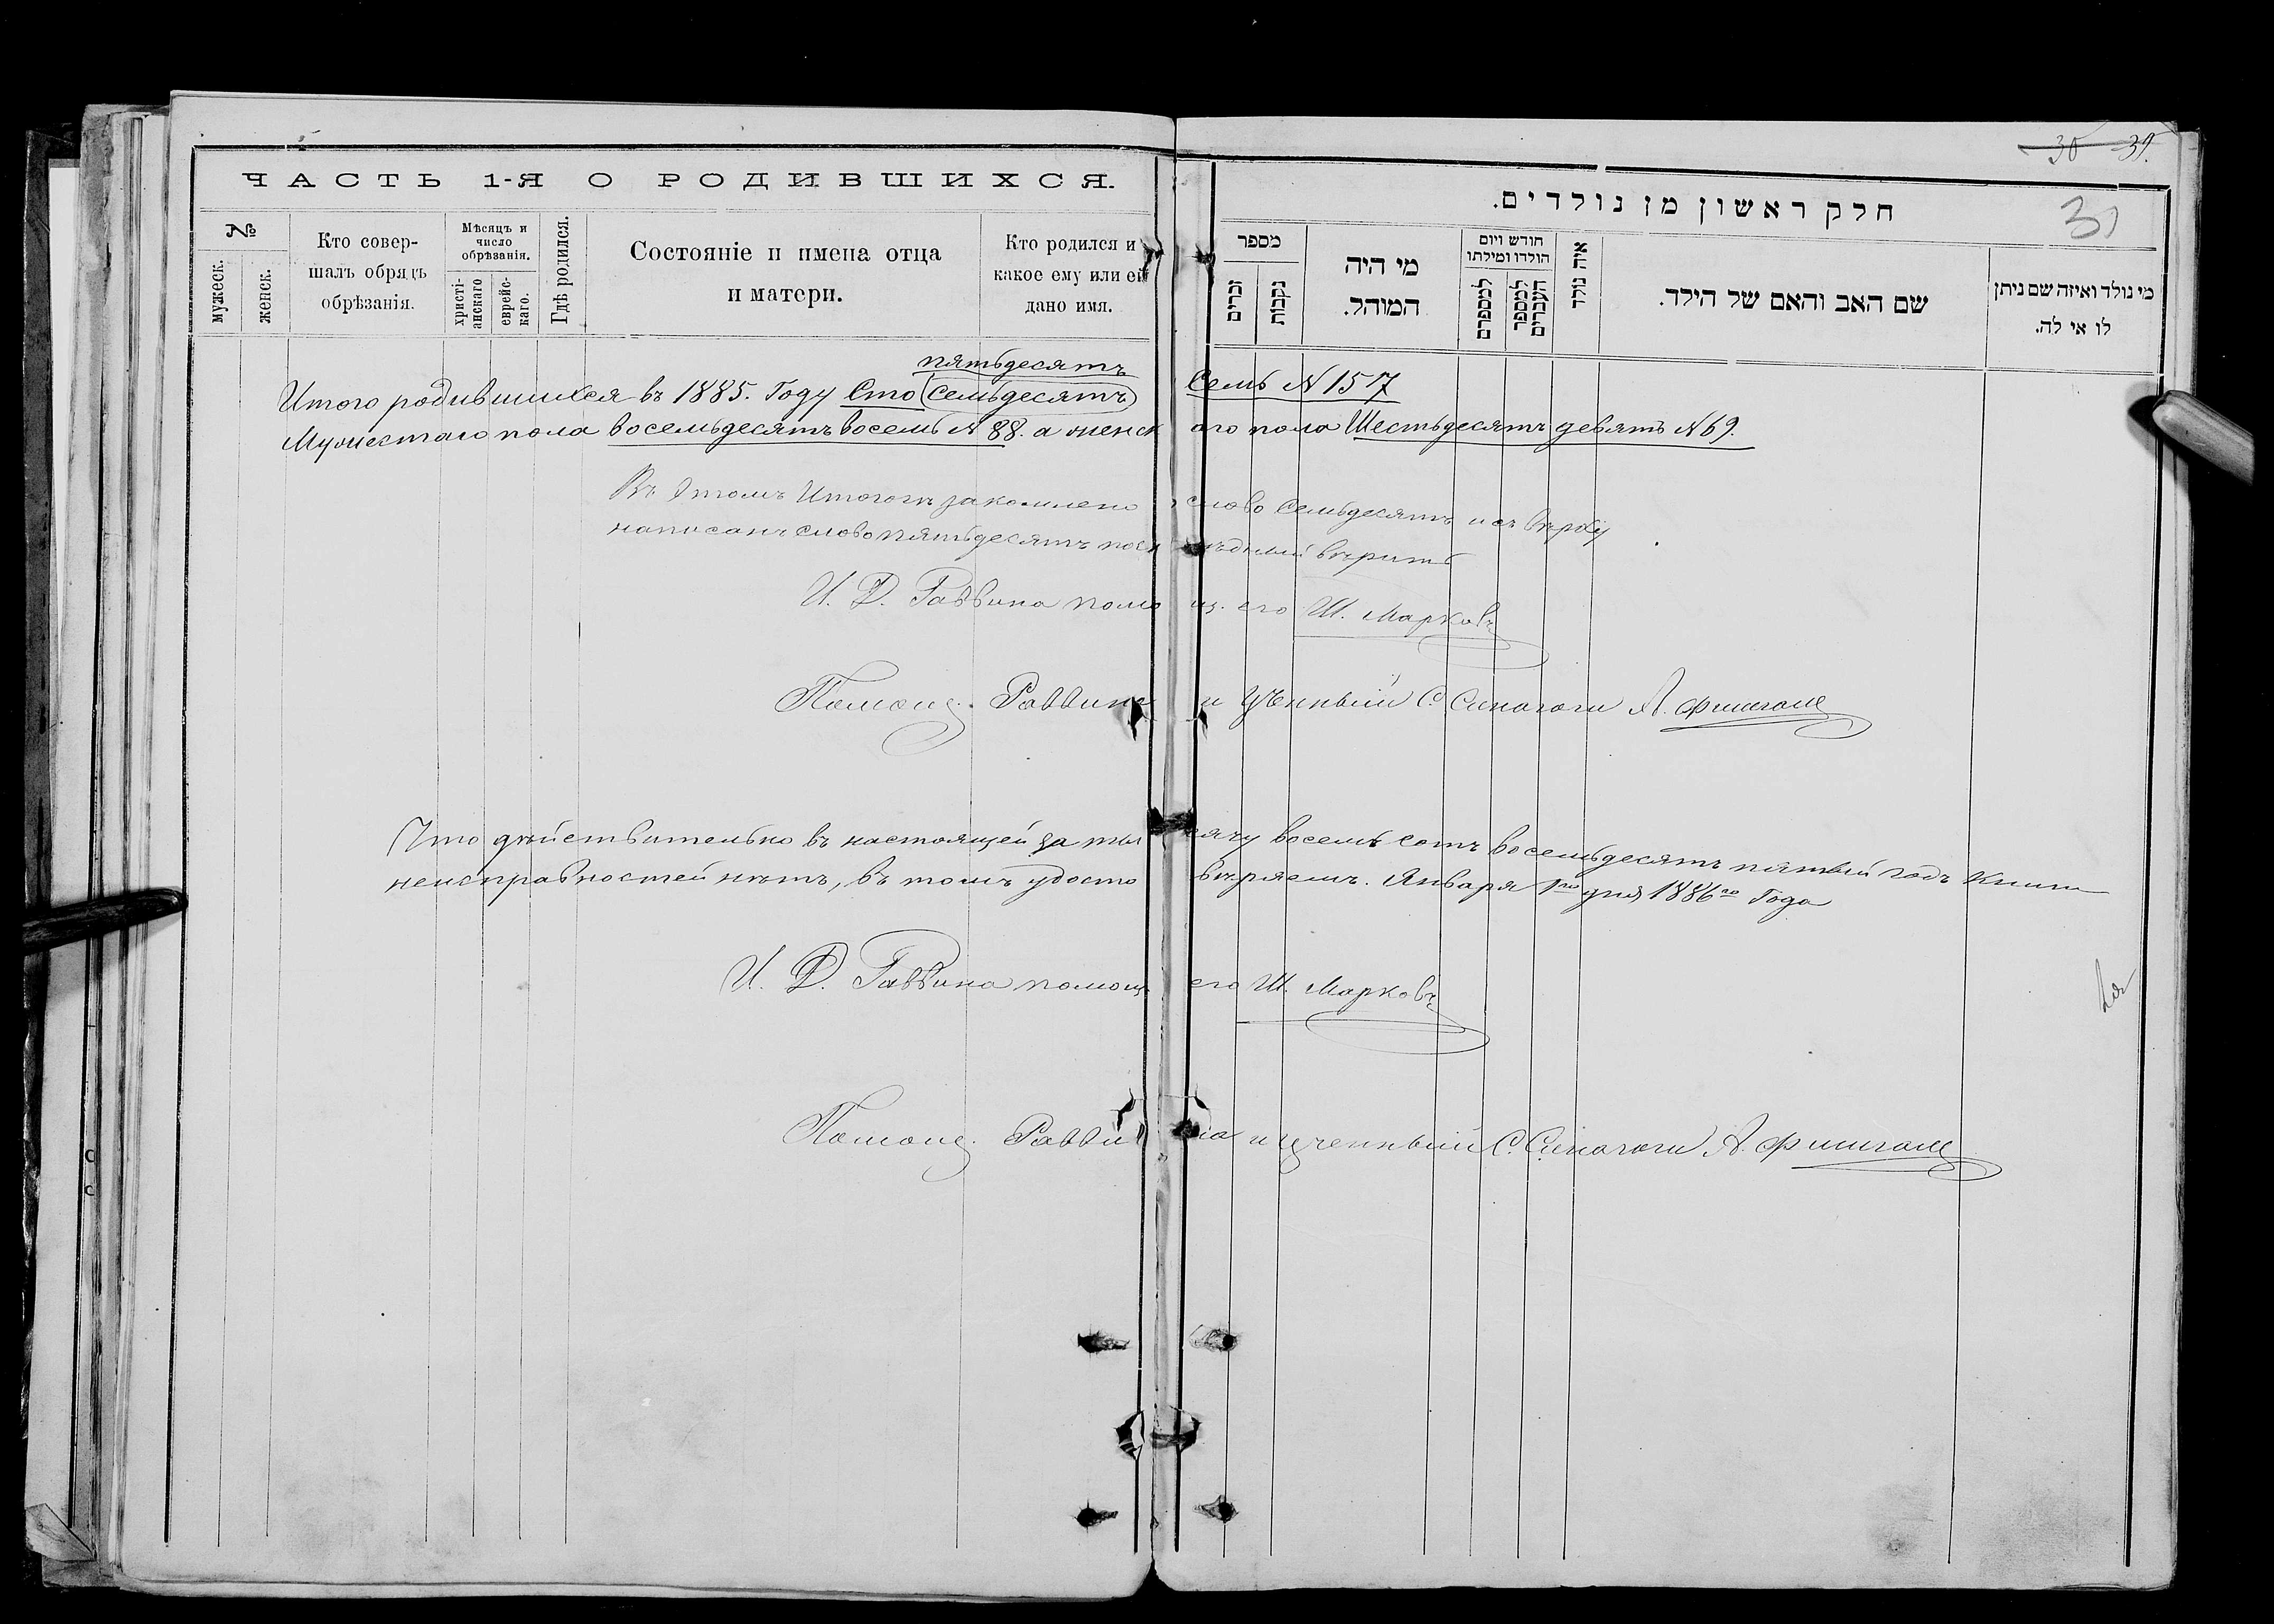 30 39.
31
ЧАСТЬ 1-Я О РОДИВШИХСЯ.
№
мужеск.
женск.
Кто совер-
шалъ обрядъ
обрѣзанія.
Мѣсяцъ и
число
обрѣзанія.
христі-
анскаго
еврейс-
каго.
Гдѣ родился.
Состояніе и имена отца
и матери.
Кто родился и
какое ему или ей
дано имя.
חלק ראשון מן נולדים.
מספר
זכרים
נקבות
מי היה
המוהל.
חודש ויום
הולדו ומילתו
למספרם
למספר
העברים
איה נולד
שם האב והאם של הילד.
מי נולד ואיזה שם ניתן
לו או לה.
пятьдесятъ
Итого родившихся въ 1885. Году Сто (семьдесятъ) Семь N 157
Мужескаго пола восемьдесятъ восемь N 88. а женскаго пола Шестьдесятъ девять N 69.
Въ Этомъ Итогогъ закоплено слово Семьдесятъ и съ верху
написанъ слово пятьдесятъ вѣрить
И. Д. Раввина помощ. его Ш. Марковъ
Помощ. Раввина и С. Синагоги А.
Что дѣйствительно въ настоящей за тысячу восемь сотъ восемьдесятъ пятый годъ книги
неисправностей нѣтъ, въ томъ удостовѣряемъ. Января 1го дня 1886го Года
И. Д. Раввина помощ его Ш. Марковъ
Помощ. Раввина и ученный С. Синагоги А.